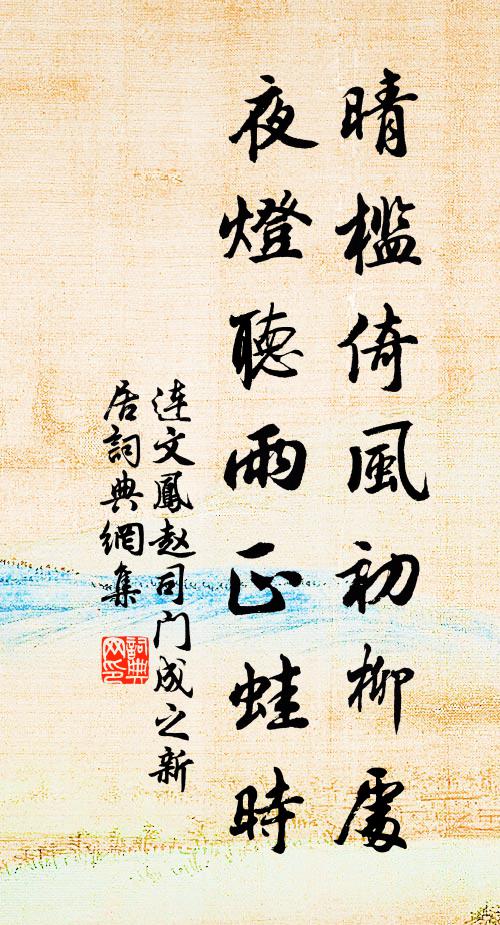 晴檻倚風初柳處
夜燈聽雨正蛙時
连文鳳赵司门成之新
居詞典網集
詞典网印